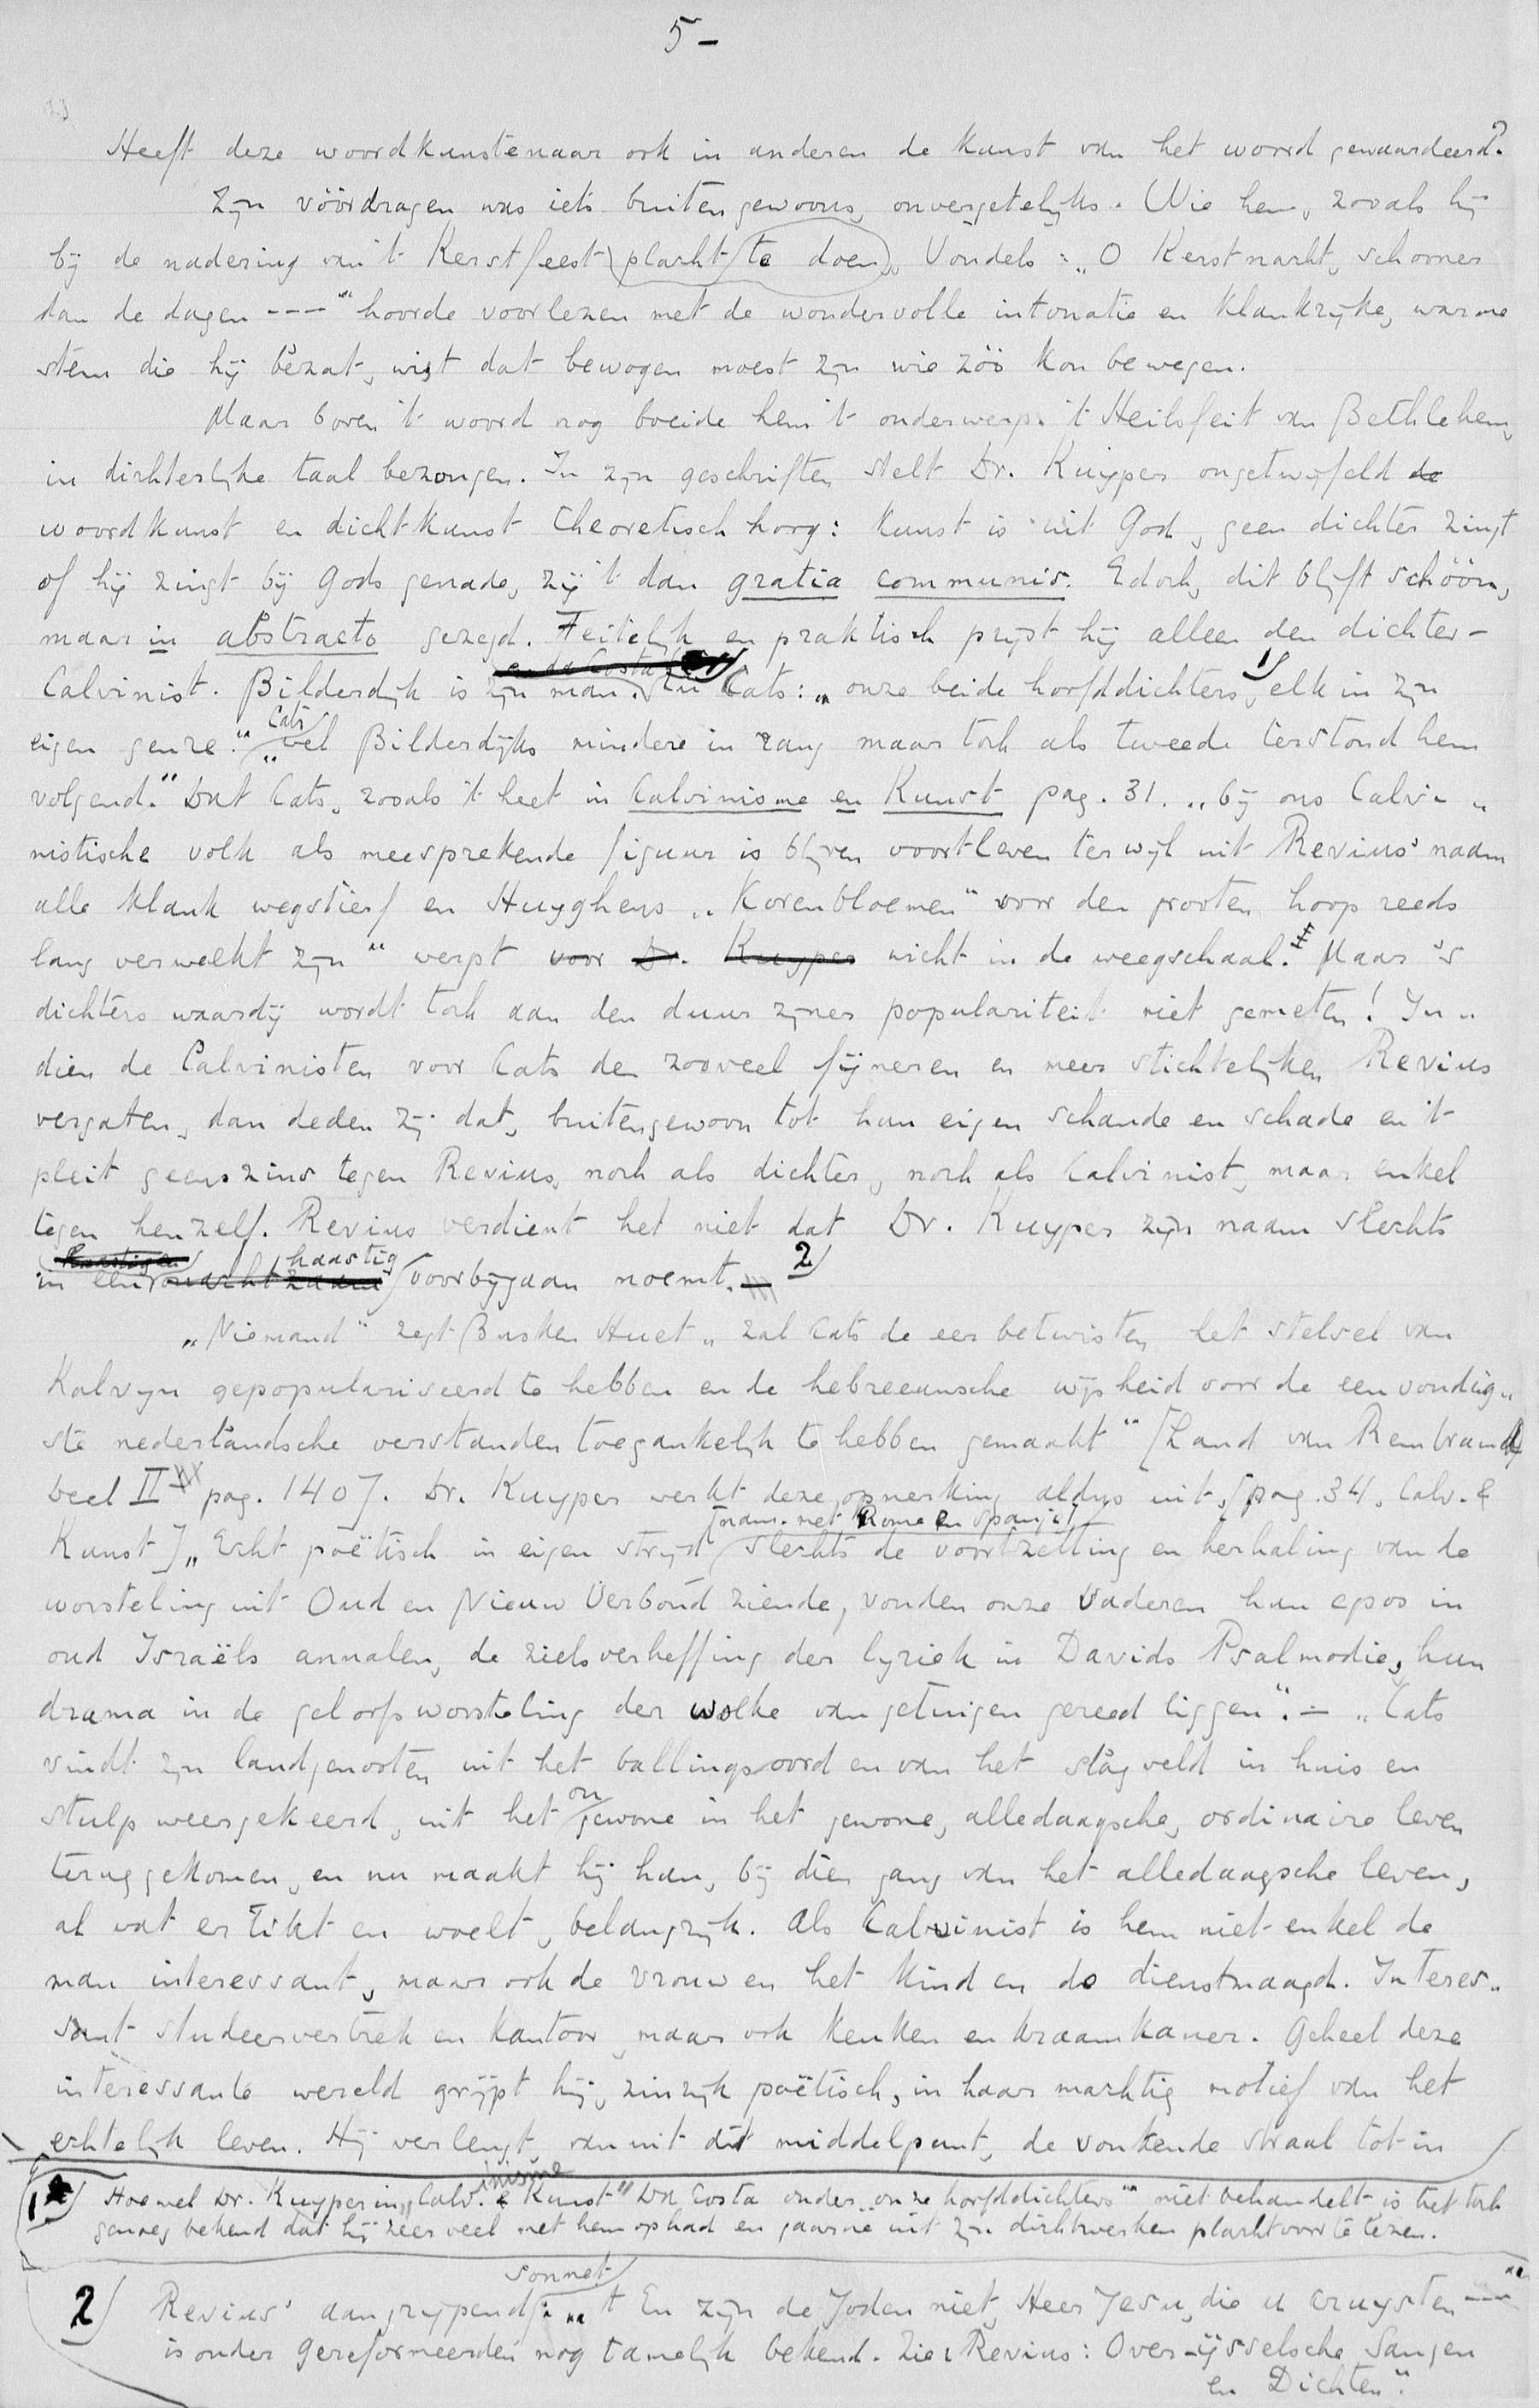 5-
Heeft deze woordkunstenaar ook in anderen de kunst van het woord gewaardeerd?
Zijn vóórdragen was iets buitengewoons, onvergetelijks. Wie hem, zooals hij
bij de nadering van 't Kerstfeest placht te doen, Vondels: „O Kerstnacht, schooner
dan de dagen ---" hoorde voorlezen met de wondervolle intonatie en klankrijke, warme
stem die hij bezat, wist dat bewogen moest zijn wie zóó kon bewegen.
Maar boven 't woord nog boeide hem 't onderwerp. 't Heilsfeit van Bethlehem,
in dichterlijke taal bezongen. In zijn geschriften stelt Dr. Kuyper ongetwijfeld de
woordkunst en dichtkunst theoretisch hoog: kunst is uit God, geen dichter zingt
of hij zingt bij Gods genade, zij 't dan gratia communis. Edoch, dit blijft schóón,
maar in abstracto gezegd. Feitelijk en praktisch prijst hij alleen den dichter-
en da Costa
Calvinist. Bilderdijk is zijn man. En Cats: „onze beide hoofddichters, 1) elk in zijn
eigen genre." Cats „wel Bilderdijks mindere in rang maar toch als tweede terstond hem
volgend." Dat Cats, zooals 't heet in Calvinisme en Kunst pag. 31. „bij ons Calvi„
nistische volk als meesprekende figuur is blijven voortleven terwijl uit Revius' naam
alle klank wegstierf en Huyghens „Korenbloemen" voor den grooten hoop reeds
lang verwelkt zijn" werpt voor Dr. Kuyper wicht in de weegschaal. Maar 's
dichters waardij wordt toch aan den duur zijner populariteit niet gemeten! In„
dien de Calvinisten voor Cats den zooveel fijneren en meer stichtelijken Revius
vergaten, dan deden zij dat, buitengewoon tot hun eigen schande en schade en 't
pleit geenszins tegen Revius, noch als dichter, noch als Calvinist, maar enkel
tegen henzelf. Revius verdient het niet dat Dr. Kuyper zijn naam slechts
haastig
in een voorbijgaan noemt. — 2)
„Niemand" zegt Busken Huet „zal Cats de eer betwisten het stelsel van
Kalvyn gepopulariseerd te hebben en de hebreeuwsche wijsheid voor de eenvoudig„
ste nederlandsche verstanden toegankelijk te hebben gemaakt" [Land van Rembrand
Deel II pag. 140]. Dr. Kuyper werkt deze opmerking aldus uit, [pag. 34, Calv. &
[nam. met Rome en Spanje]
Kunst] „Echt poëtisch in eigen strijd slechts de voortzetting en herhaling van de
worsteling uit Oud en Nieuw Verbond ziende, vonden onze vaderen hun epos in
oud Israëls annalen, de zielsverheffing der lyriek in Davids Psalmodie, hun
drama in de geloofsworsteling der wolke van getuigen gereed liggen". — „Cats
vindt zijn landgenooten uit het ballingsoord en van het slagveld in huis en
stulp weergekeerd, uit het ongewone in het gewone, alledaagsche, ordinaire leven
teruggekomen, en nu maakt hij hun, bij dien gang van het alledaagsche leven,
al wat er tikt en woelt, belangrijk. Als Calvinist is hem niet enkel de
man interessant, maar ook de vrouw en het kind en de dienstmaagd. Interes„
sant studeervertrek en kantoor, maar ook keuken en kraamkamer. Geheel deze
interessante wereld grijpt hij, zinrijk poëtisch, in haar machtig motief van het
echtelijk leven. Hij verlengt, van uit dit middelpunt, de vonkende straal tot in
1) Hoewel Dr. Kuyper in „Calvinisme & Kunst" Da Costa onder „onze hoofddichters" niet behandelt is het toch
genoeg bekend dat hij zeer veel met hem ophad en gaarne uit zijn dichtwerken placht voor te lezen.
2) Revius' aangrijpend sonnet: „'t En zijn de Joden niet, Heer Jesu, die u cruysten ---"
is onder Gereformeerden nog tamelijk bekend. Zie: Revius: Over-ijsselsche Sangen
en Dichten".